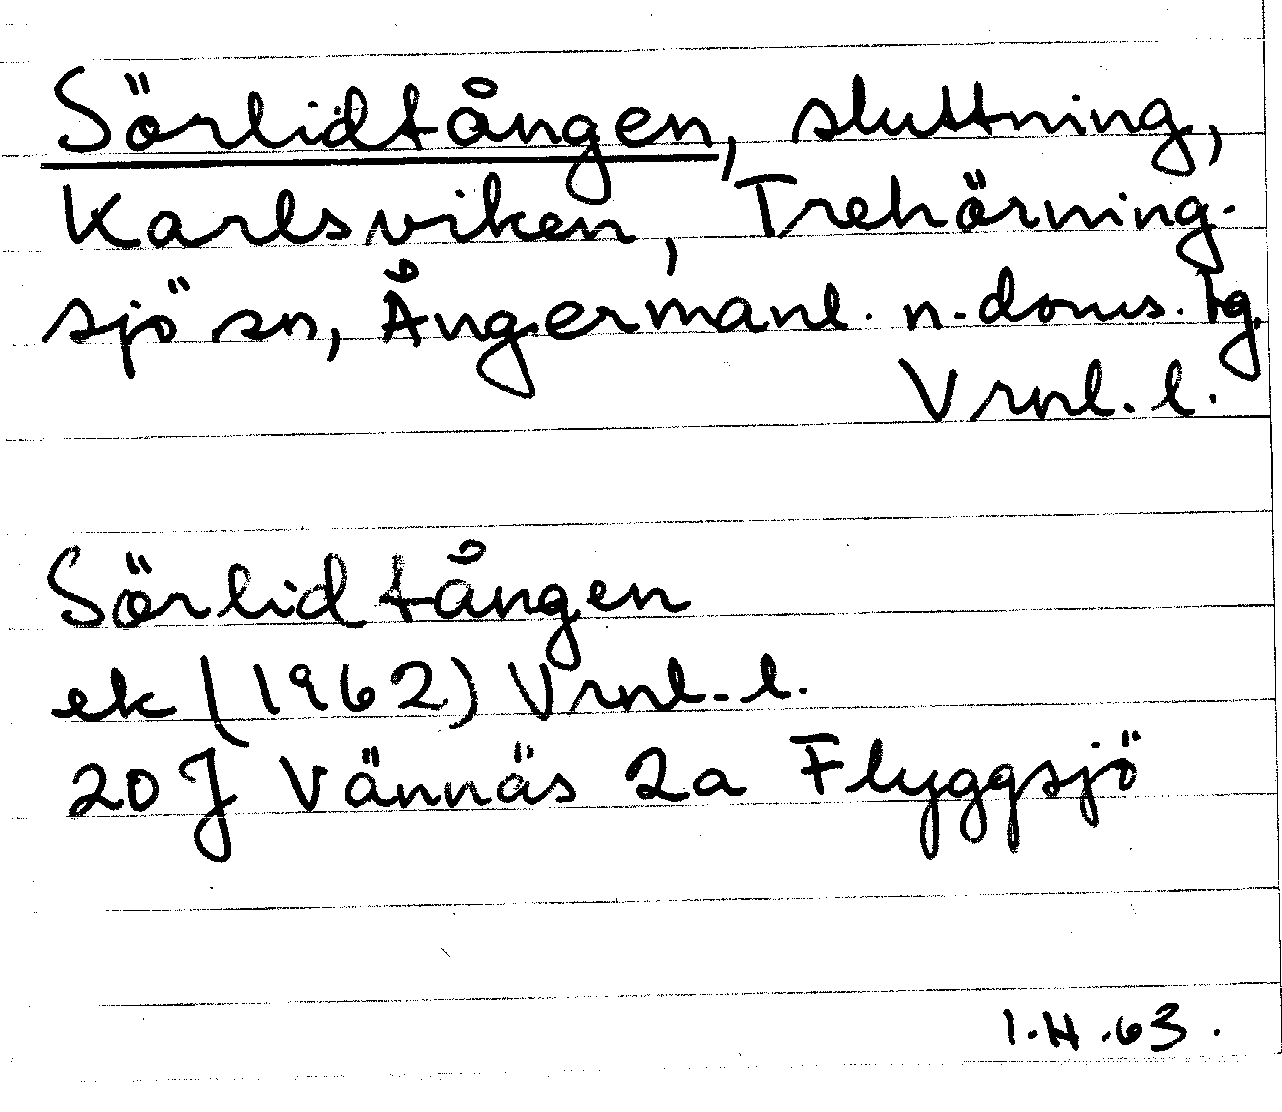 Sörlidtången, sluttning,
Karlsviken, Trehörning-
sjö sn, Ångermanl. n. doms. tg.
Vrnl. l.
Sörlidtången
ek (1962) Vrnl. l.
20 J Vännäs 2a Flyggsjö
I.H.63.